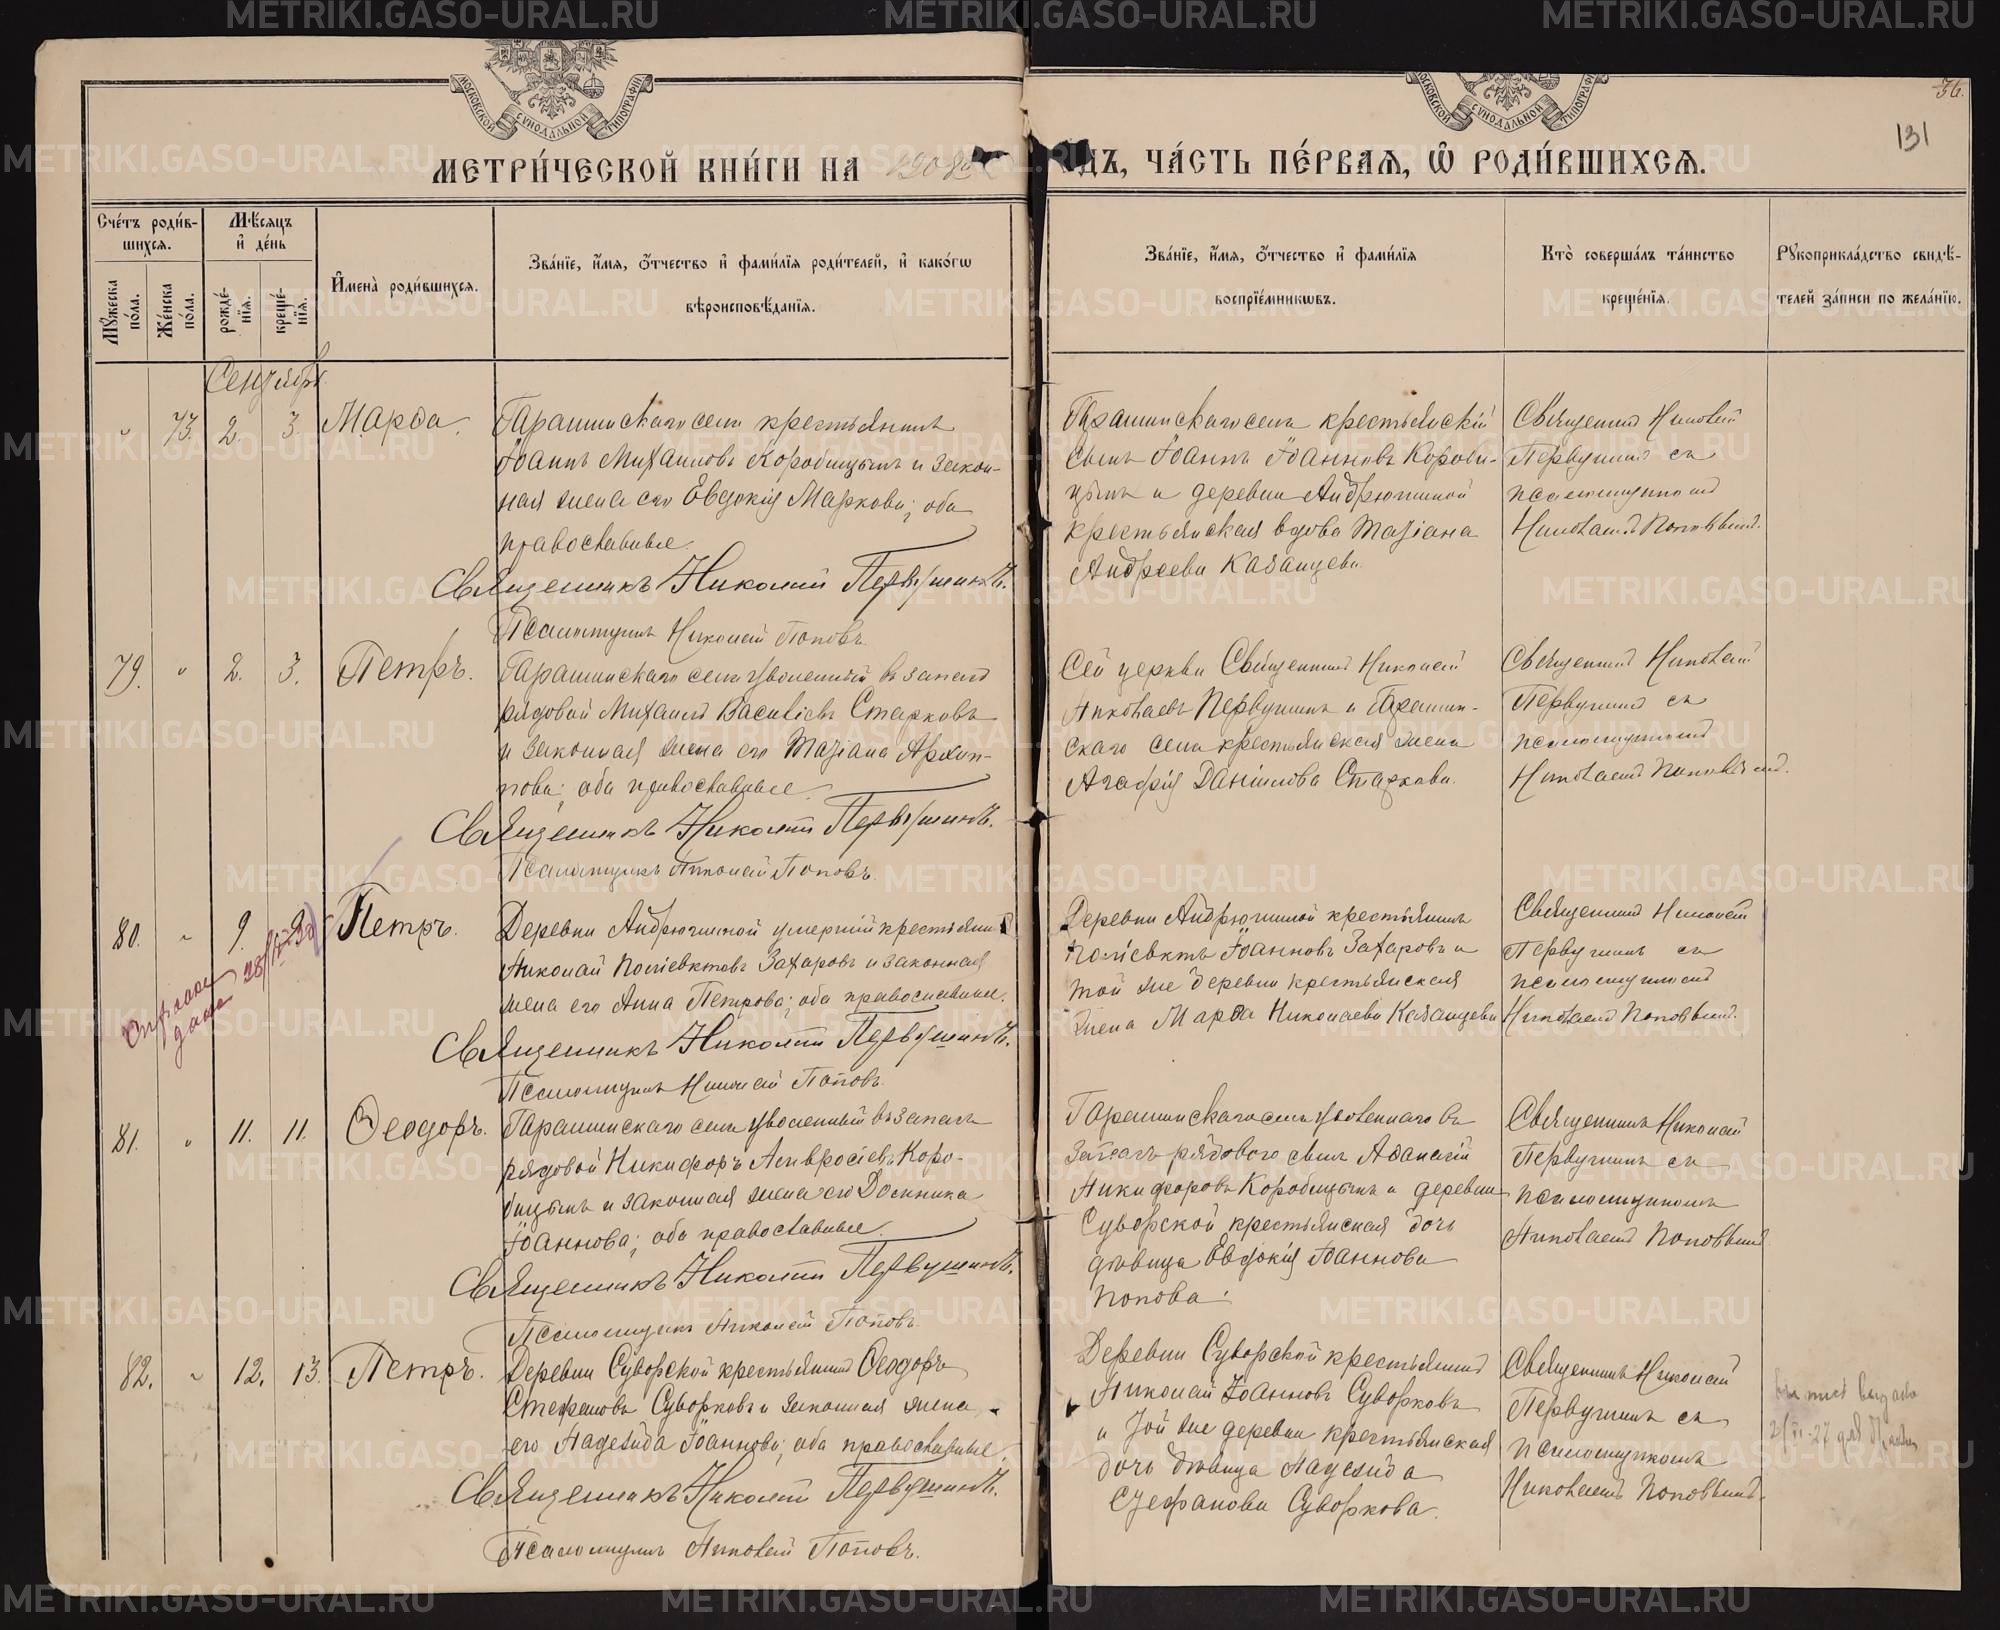 METRIKI.GASO-URAL.RU
МОСКОВСКОЙ СѴНОДАЛЬНОЙ ТИПОГРАФІИ
МОСКОВСКОЙ СѴНОДАЛЬНОЙ ТИПОГРАФІИ
36.
131
МЕТРИ́ЧЕСКОЙ КНИ́ГИ НА 1908
ДЪ, ЧА́СТЬ ПЕ́РВАѦ, Ѽ РОДИ́ВШИХСѦ.
Сче́тъ роди́в-
шихсѧ.
Мѣ́сѧцъ
и҆ де́нь
Мꙋ́жеска по́ла.
Же́нска по́ла.
рожде́-
нїѧ.
креще́-
нїѧ.
И҆мена̀ роди́вшихсѧ.
Зва́нїе, и҆́мѧ, ѻ҆́тчество и҆ фами́лїѧ роди́телей, и҆ како́гѡ
вѣроисповѣ́данїѧ.
Зва́нїе, и҆́мѧ, ѻ҆́тчество и҆ фами́лїѧ
воспрїе́мникѡвъ.
Кто̀ соверша́лъ та́инство
креще́нїѧ.
Рꙋкоприкла́дство свидѣ́-
телей за́писи по жела́нїю.
Сентябрь
" 73. 2. 3. Марѳа.
Гарашкинскаго села крестьянинъ
Іоаннъ Михаиловъ Коробицынъ и закон-
ная жена его Евдокія Маркова; оба
православные.
Священникъ Николай Первушинъ.
Псаломщикъ Николай Поповъ.
Гарашкинскаго села крестьянскій
сынъ Іоаннъ Іоанновъ Короби-
цынъ и деревни Андрюшиной
крестьянская вдова Татіана
Андреева Казанцева.
Священникъ Николай
Первушинъ съ
псаломщикомъ
Николаемъ Поповымъ.
79. " 2. 3. Петръ.
Гарашкинскаго села уволенный въ запасъ
рядовой Михаилъ Василіевъ Старковъ
и законная жена его Татіана Архип-
пова; оба православные.
Священникъ Николай Первушинъ.
Псаломщикъ Николай Поповъ.
Сей церкви Священникъ Николай
Николаевъ Первушинъ и Гарашкин-
скаго села крестьянская жена
Агафія Даніилова Старкова.
Священникъ Николай
Первушинъ съ
псаломщикомъ
Николаемъ Поповымъ.
80. " 9. 9. Петръ.
Деревни Андрюшиной умершій крестьянинъ
Николай Поліевктовъ Захаровъ и законная
жена его Анна Петрова; оба православные.
Священникъ Николай Первушинъ.
Псаломщикъ Николай Поповъ.
Деревни Андрюшиной крестьянинъ
Поліевктъ Іоанновъ Захаровъ и
той же деревни крестьянская
жена Марѳа Николаева Казанцева
Священникъ Николай
Первушинъ съ
псаломщикомъ
Николаемъ Поповымъ.
81. " 11. 11. Ѳеодоръ.
Гарашкинскаго села уволенный въ запасъ
рядовой Никифоръ Амвросіевъ Коро-
бицынъ и законная жена его Домника
Іоаннова; оба православные.
Священникъ Николай Первушинъ.
Псаломщикъ Николай Поповъ.
Гарашкинскаго села уволеннаго въ
запасъ рядового сынъ Аѳанасій
Никифоровъ Коробицынъ и деревни
Суворской крестьянская дочь
дѣвица Евдокія Іоаннова
Попова.
Священникъ Николай
Первушинъ съ
псаломщикомъ
Николаемъ Поповымъ
82. " 12. 13. Петръ.
Деревни Суворской крестьянинъ Ѳеодоръ
Стефановъ Суворковъ и законная жена
его Надежда Іоаннова; оба православные.
Священникъ Николай Первушинъ.
Псаломщикъ Николай Поповъ.
Деревни Суворской крестьянинъ
Николай Іоанновъ Суворковъ
и той же деревни крестьянская
дочь дѣвица Надежда
Стефанова Суворкова.
Священникъ Николай
Первушинъ съ
псаломщикомъ
Николаемъ Поповымъ.